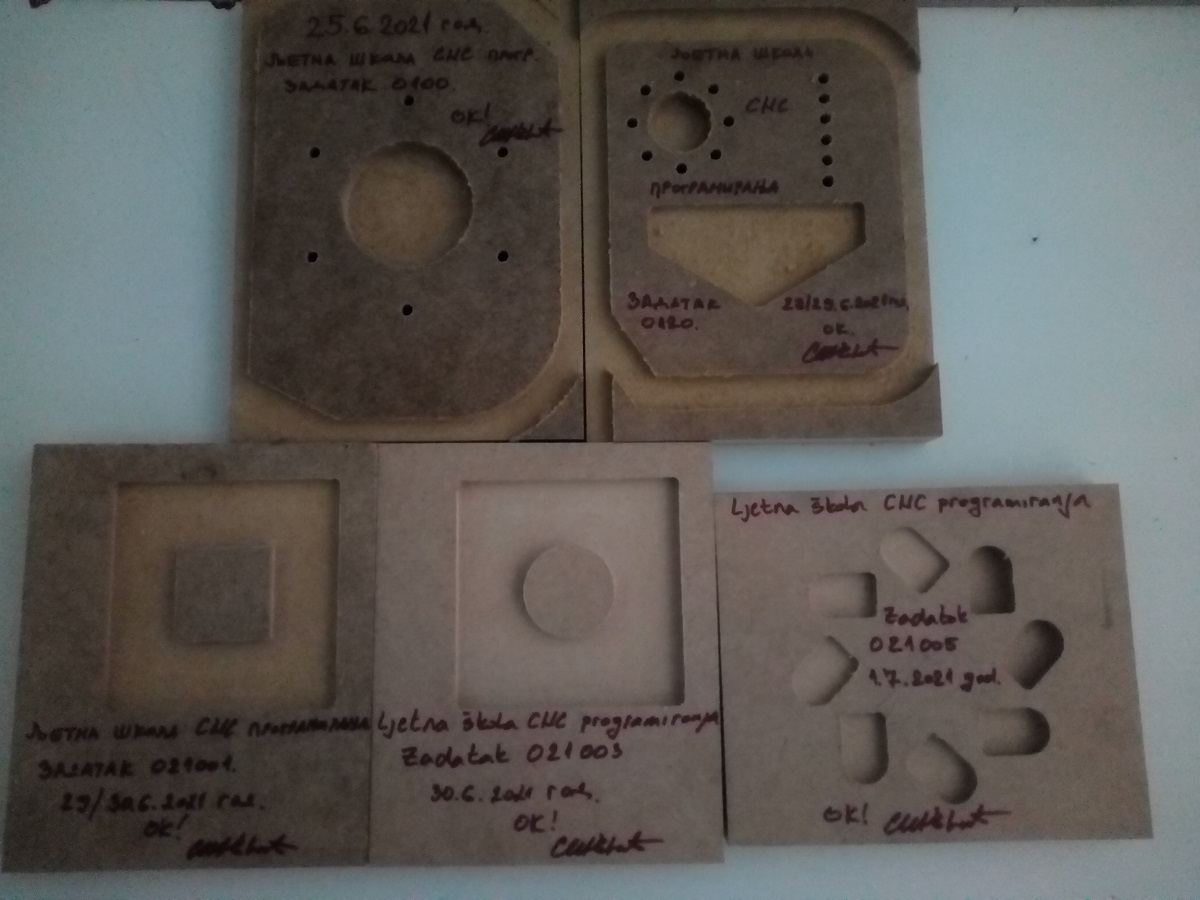 25.6.2021 год.
ЉЕТНА ШКОЛА CNC ПРОГР.
ЗАДАТАК 0100.
OK!
ЉЕТНА ШКОЛА
CNC
ПРОГРАМИРАЊА
ЗАДАТАК
0120.
28/29.6.2021 год.
OK.
ЉЕТНА ШКОЛА CNC ПРОГРАМИРАЊА
ЗАДАТАК 021001.
29/30.6.2021 год.
OK!
Ljetna škola CNC programiranja
Zadatak 021003
30.6.2021 год.
OK!
Ljetna škola CNC programiranja
Zadatak
021005
1.7.2021 god.
OK!